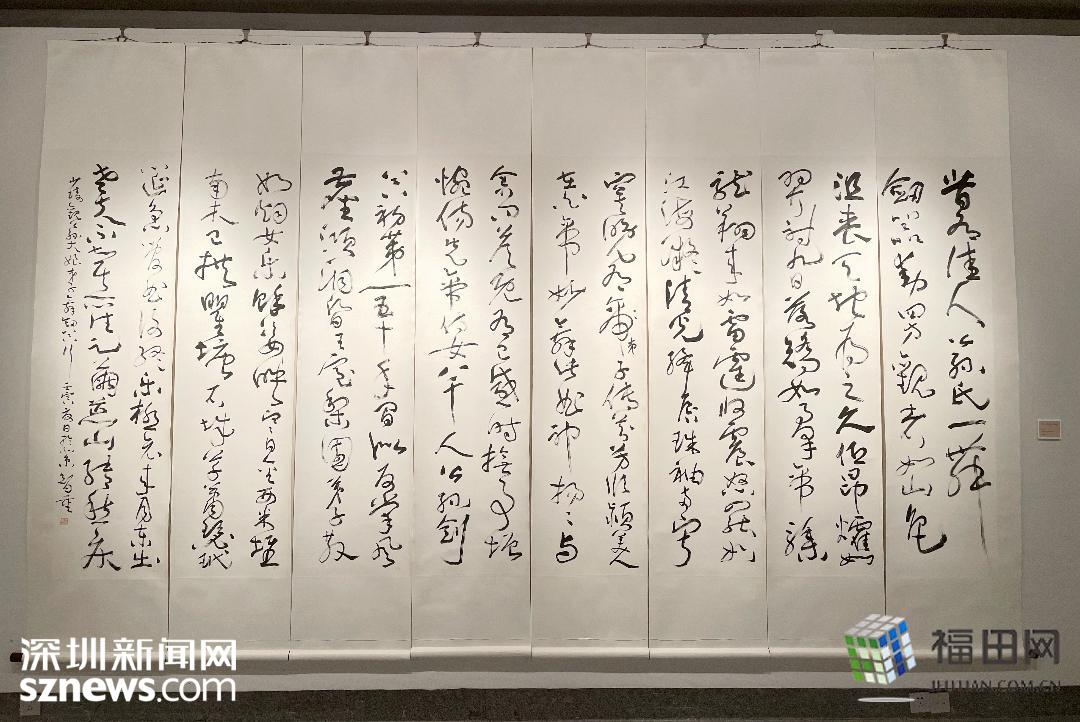 昔有佳人公孫氏一舞
劍器動四方觀者如山色
沮喪天地為之久低昂㸌如
羿射九日落矯如羣帝驂
龍翔來如雷霆收震怒罷如
江海凝清光絳唇珠袖兩寂
寞晚有弟子傳芬芳臨潁美人
在白帝妙舞此曲神揚〻與
余問答既有以感時撫事增
惋傷先帝侍女八千人公孫劍
器初第一五十年間似反掌風
塵澒洞昏王室梨園弟子散
如煙女樂餘姿映寒日金粟堆
南木已拱瞿塘石城草蕭瑟玳
筵急管曲復終樂極哀來月東出
老夫不知其所往足繭荒山轉愁疾
少陵觀公孫大娘弟子舞劍器行
深圳新闻网
sznews.com
福田网